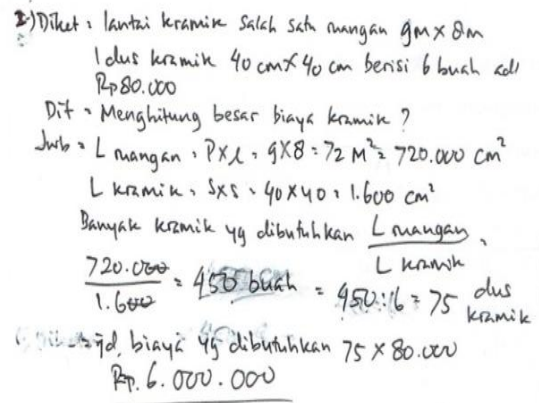 2.) Diket : lantai kramik salah satu ruangan 9m x 8m
1 dus kramik 40 cm x 40 cm berisi 6 buah adl
Rp 80.000
Dit : Menghitung besar biaya kramik ?
Jwb : L ruangan : P x l : 9 x 8 = 72 M² = 720.000 cm²
L kramik : S x S : 40 x 40 : 1.600 cm²
Banyak kramik yg dibutuhkan L ruangan / L kramik =
720.000 / 1.600 = 450 buah = 450 : 6 = 75 dus kramik
Jd, biaya yg dibutuhkan 75 x 80.000
Rp. 6.000.000